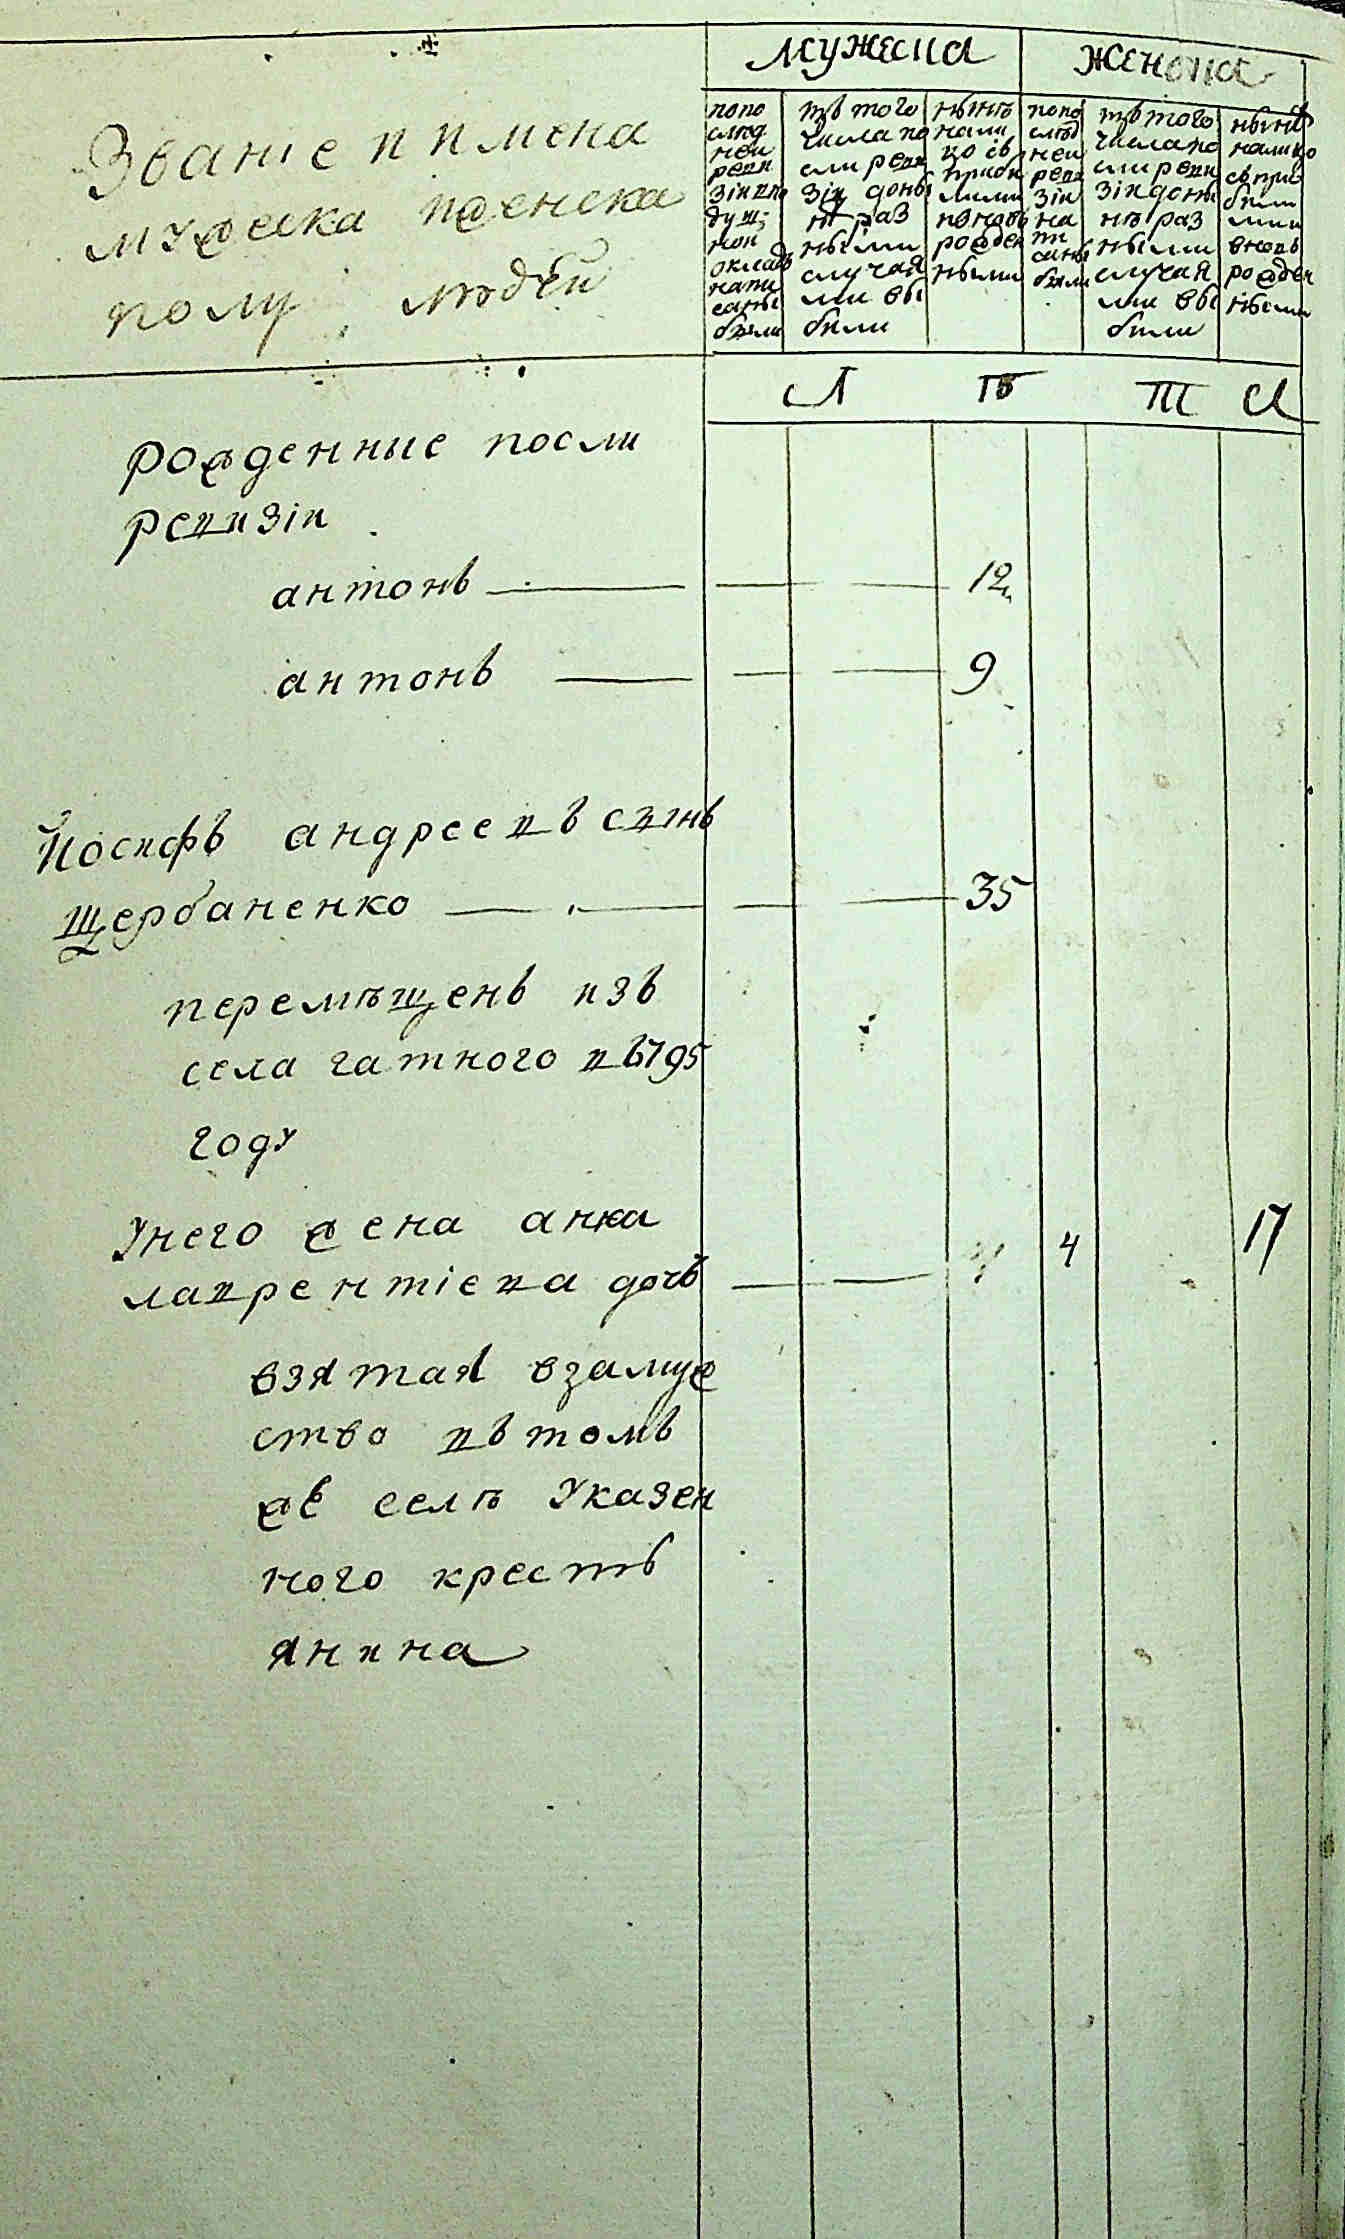 Званіе и имена
мужеска иженска
полу людей
мужеска
женска
попо
след
ней
реви
зіи впо
душ
ной
окладъ
напи
саны
были
изъ того
числа по
сли реви
зіи доны
нѣ раз
ными
случая
ми вы
были
нынѣ
нали
цо съ
прибы
лыми
иновь
рожден
ными
попо
слѣд
ней
реви
зіи
на
пи
саны
были
изъ того
числа по
сли реви
зіи доны
нѣ раз
ными
случая
ми вы
были
нынѣ
налицо
съ при
были
ми и
вновь
рожден
ными
Л ѣ т а
рожденные посли
ревизіи
антонъ 12
антонъ 9
Йосифъ андреевъ сынъ
щербаненко 35
перемѣщенъ изъ
села гатного въ 1795
году
Унего жена анна
лаврентіева дочь 4 17
взятая взамуж
ство въ томъ
жъ селѣ Указен
ного кресть
янина